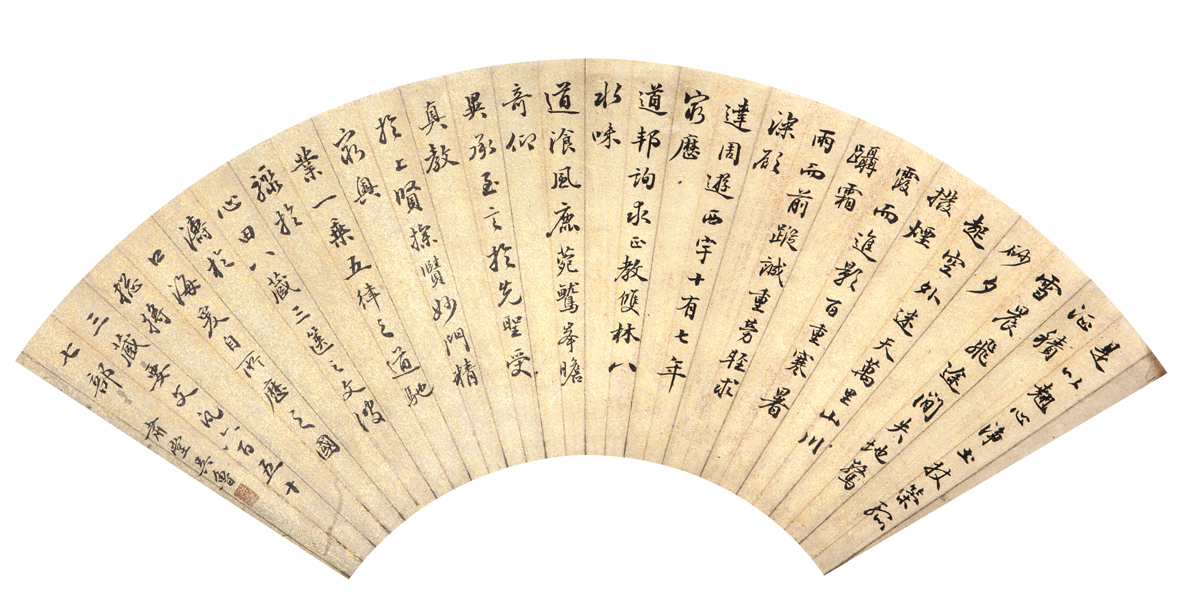 是以翹心淨土杖策孤
征積
雪晨飛途間失地驚
砂夕
起空外迷天萬里山川
撥煙
霞而進影百重寒暑
躡霜
雨而前蹤誠重勞輕求
深願
達周遊西宇十有七年
窮歷
道邦詢求正教雙林八
水味
道飡風鹿苑鷲峯瞻
奇仰
異承至言於先聖受
真教
於上賢探賾妙門精
窮奧
業一乘五律之道馳
驟於
心田八藏三篋之文波
濤於
口海爰自所歷之國
總將
三藏要文凡六百五十
七部